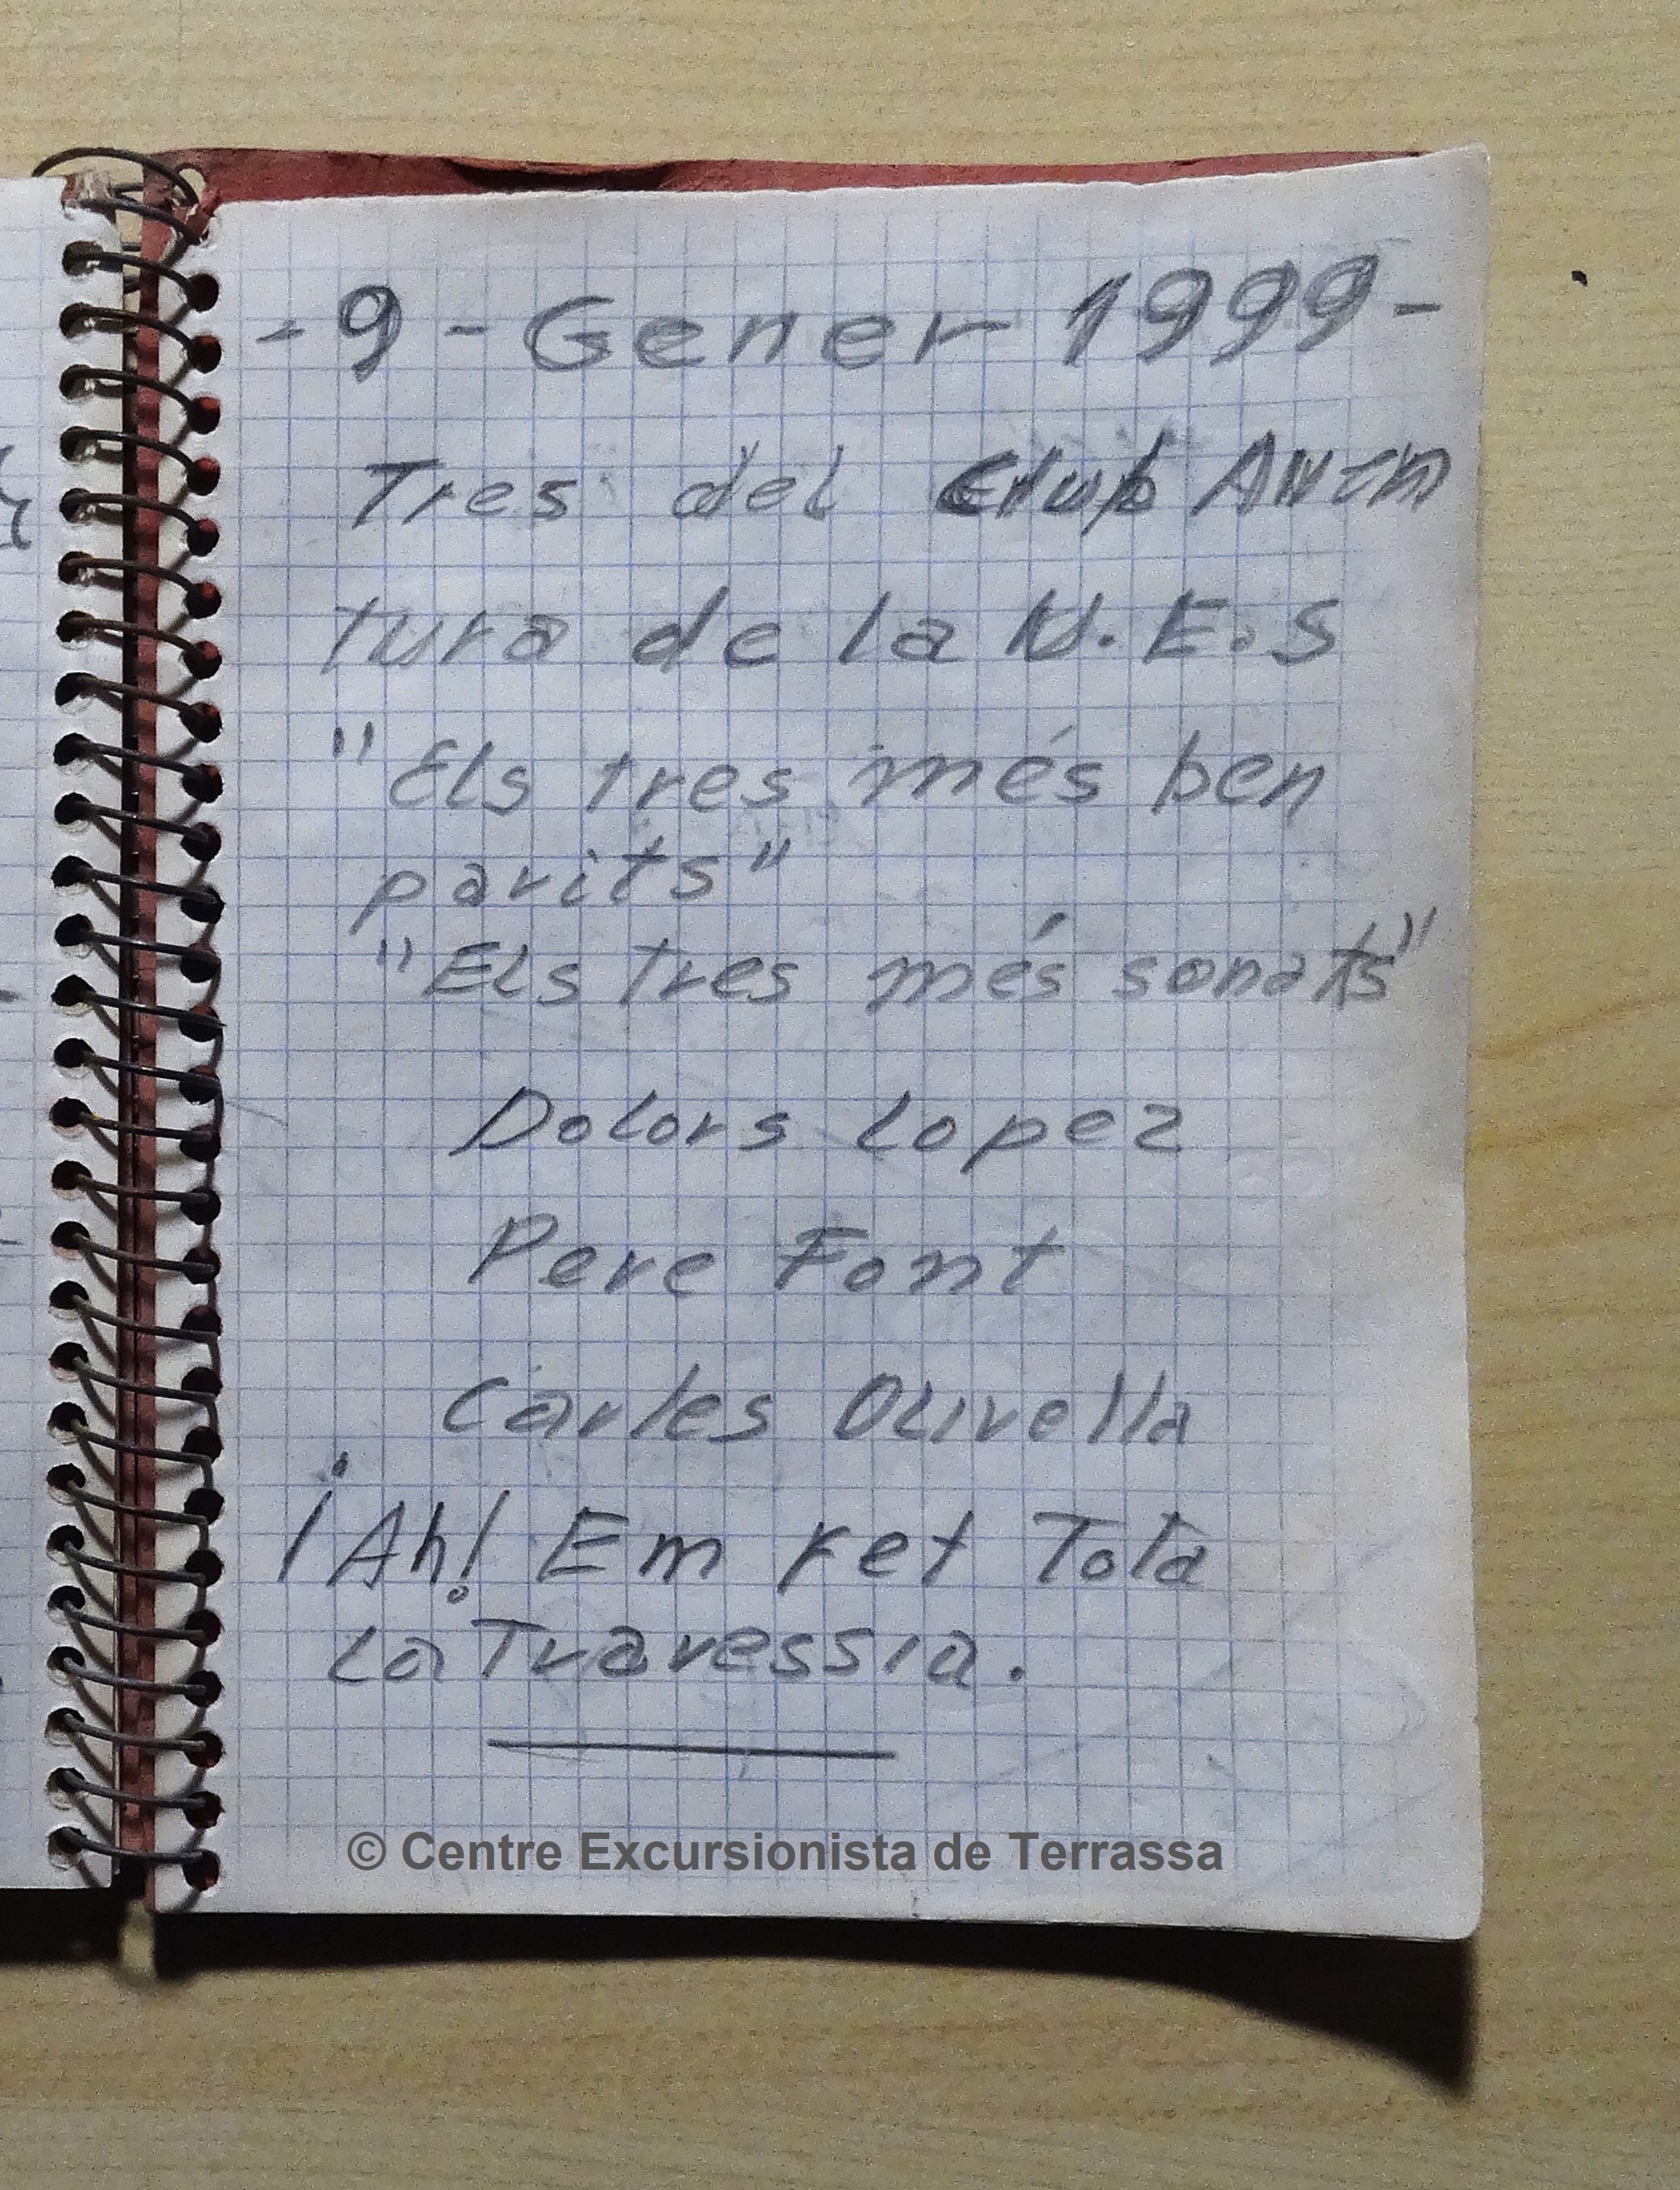 - 9 - Gener 1999 -
Tres del Club Aven
tura de la U.E.S
"Els tres més ben
parits"
"Els tres més sonats"
Dolors Lopez
Pere Font
Carles Olivella
¡Ah! Em fet Tota
La Travessia.
© Centre Excursionista de Terrassa